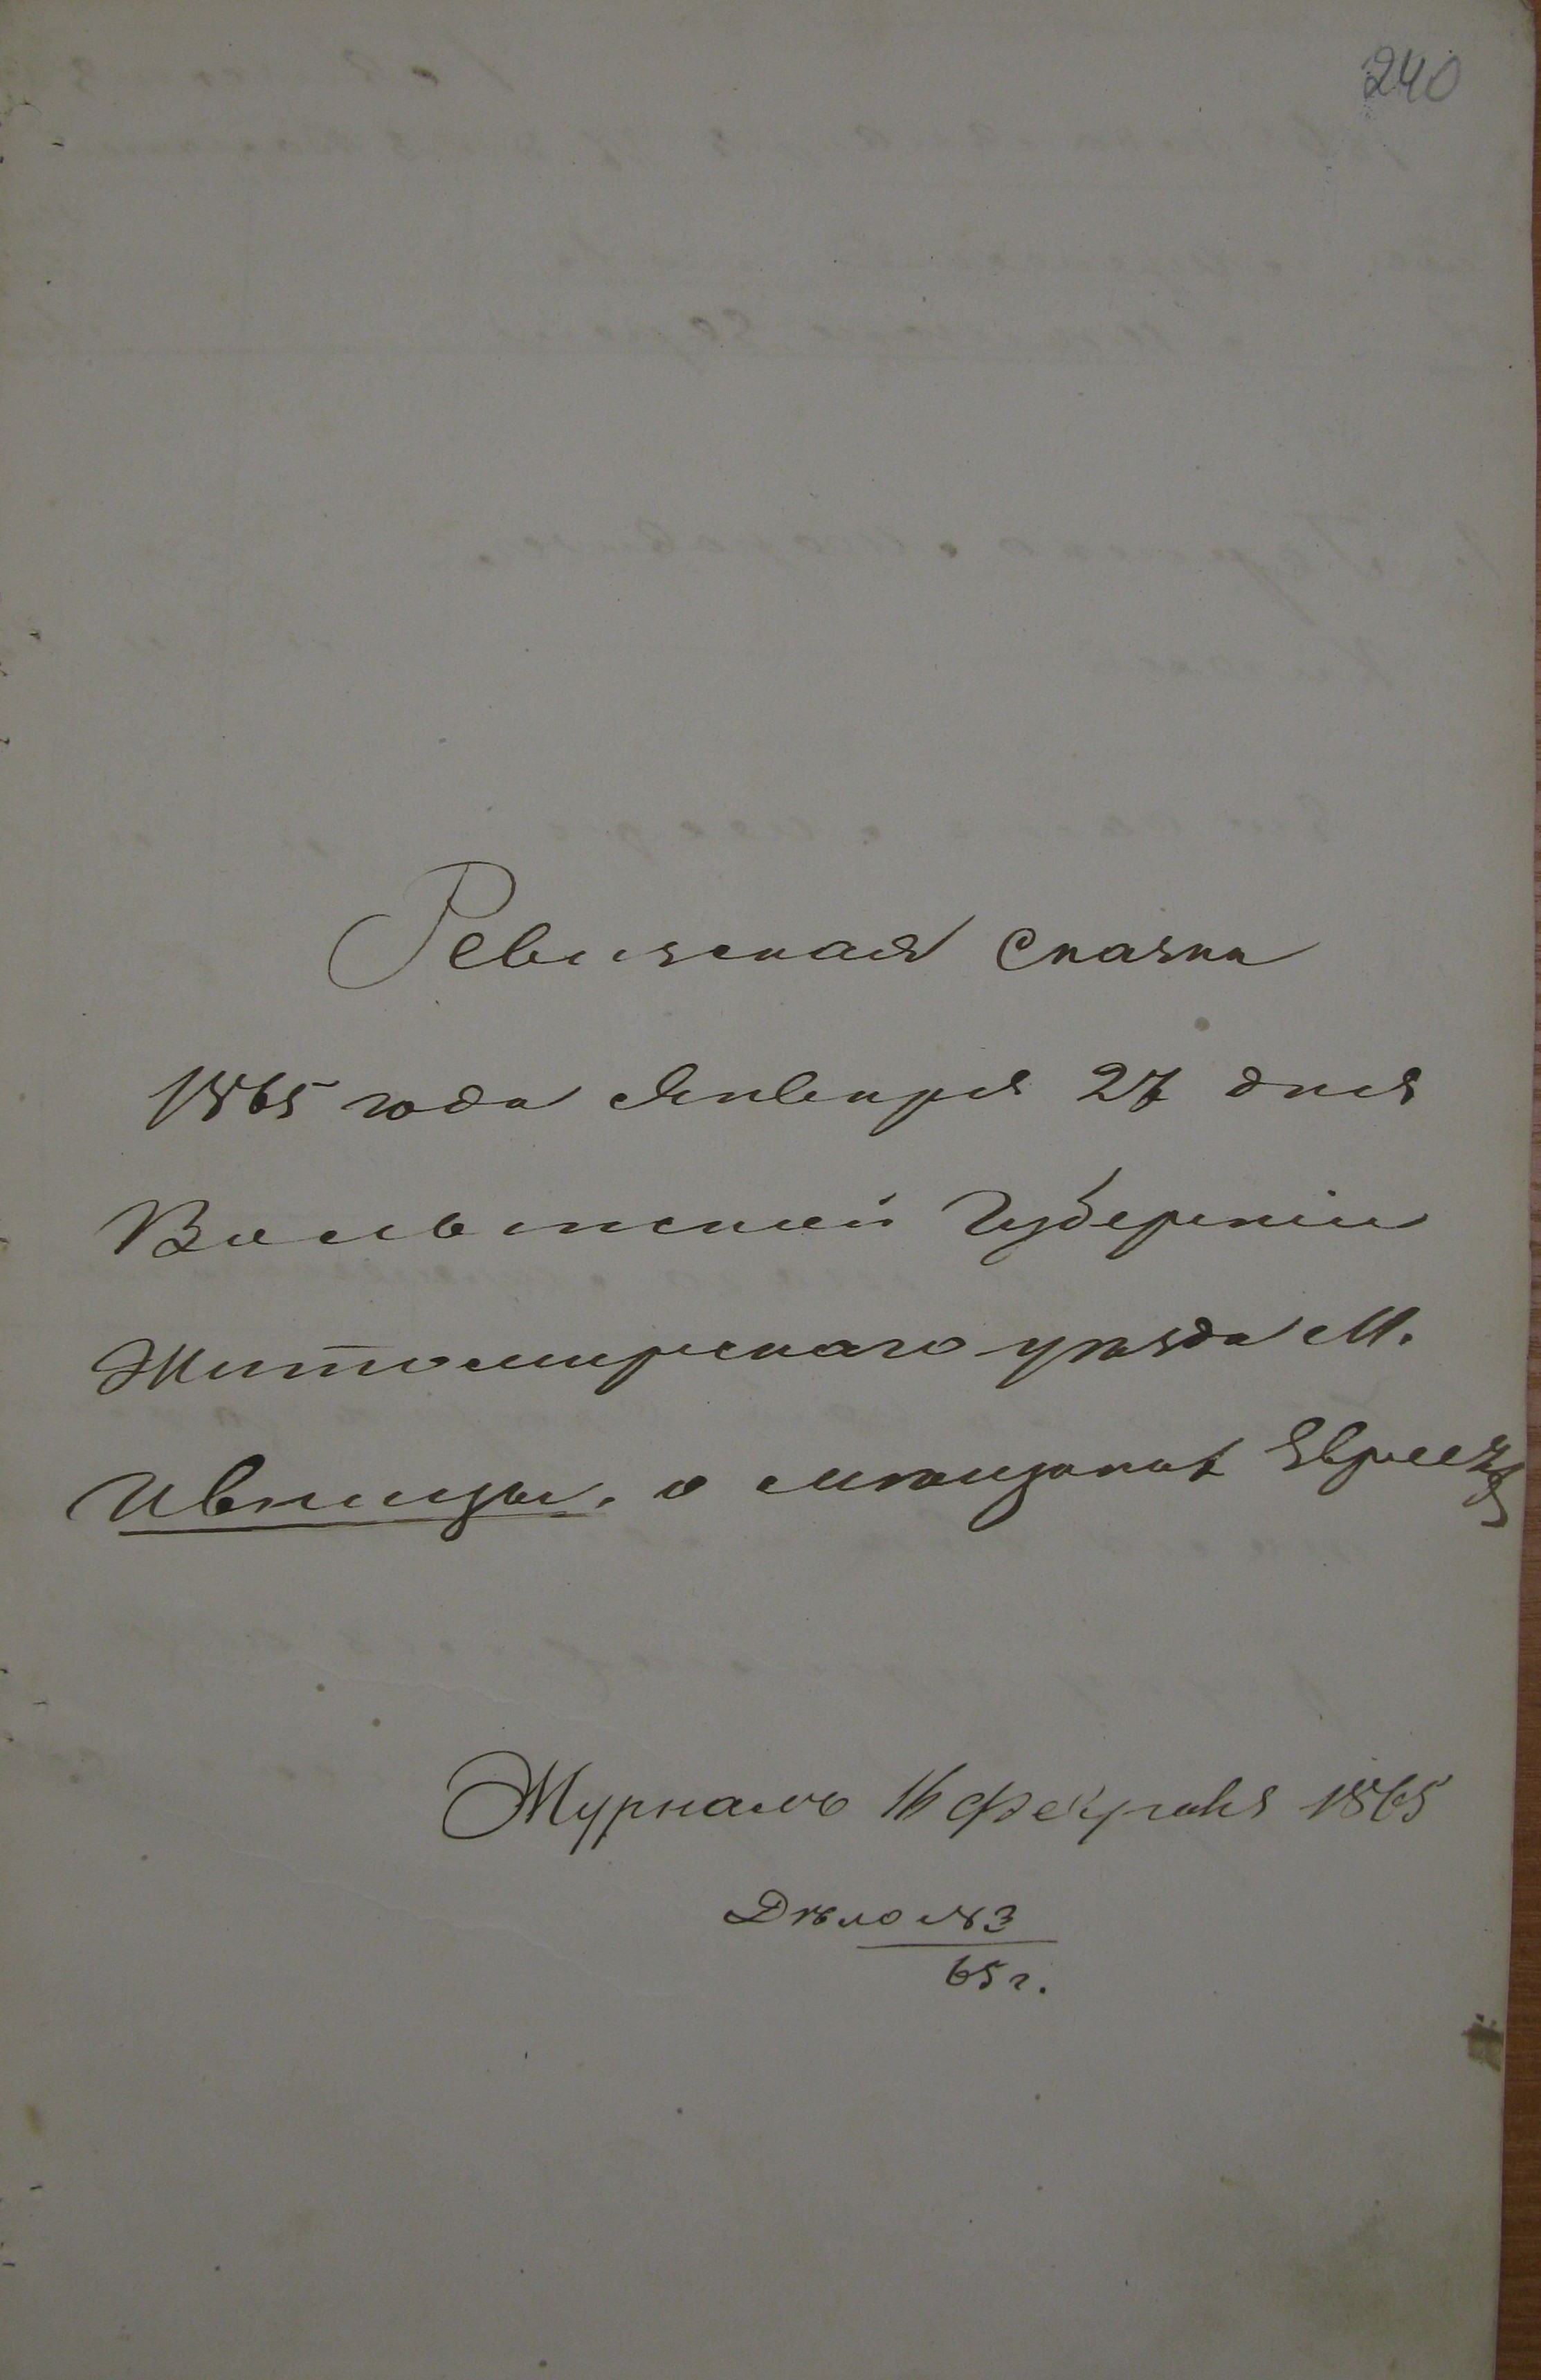 240
Ревизская Сказка
1865 года Января 27 дня
Волынской Губерніи
Житомирскаго уѣзда М.
Ивницы. о мѣщанах Евреях
Журналъ 16 февраля 1865
Дѣло № 3
65 г.